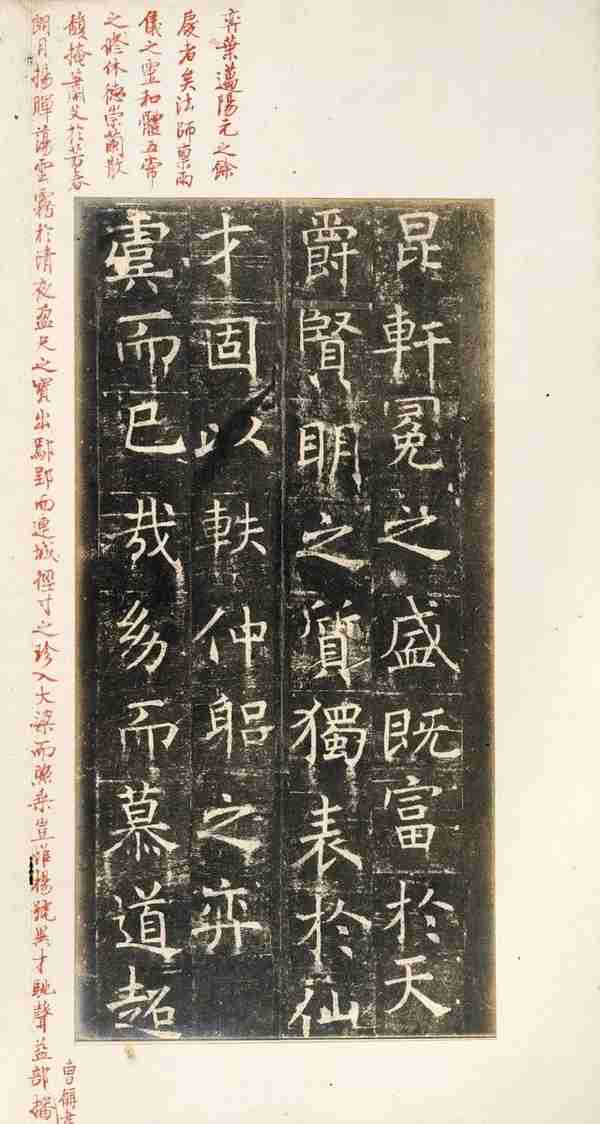 弈葉邁陽元之餘
慶者矣法師稟兩
儀之靈和體五常
之修休德崇蘭散
馥掩蕭艾於芳春
朗月揚暉蕩雲霧於清夜盈尺之寶出鄢郢而連城徑寸之珍入大梁而照乘豈唯揚號異才馳聲益部播
昆軒冕之盛既富於天
爵賢明之質獨表於仙
才固以軼仲躳之弈
虞而已哉幼而慕道超